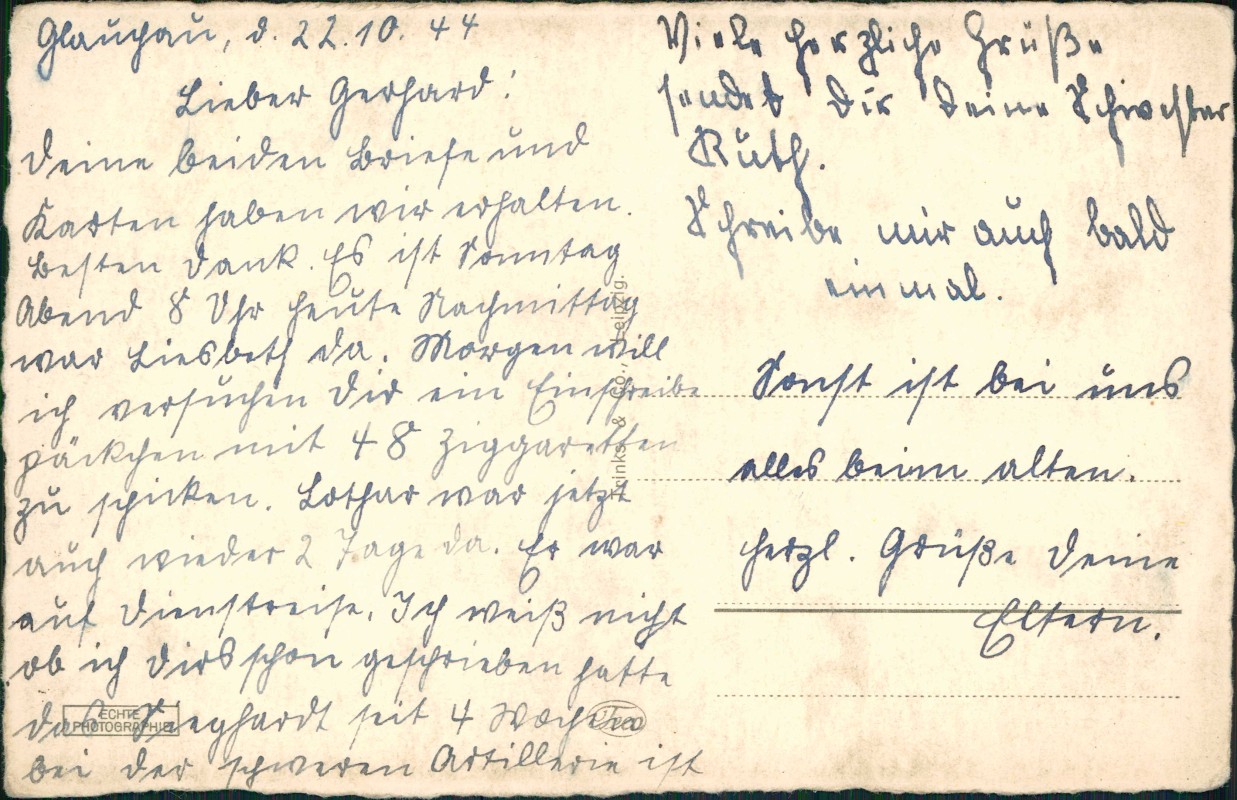 Glauchau, d. 22.10. 44
Lieber Gerhard!
Deine beiden Briefe und
Karten haben wir erhalten.
Besten Dank. Es ist Sonntag
Abend 8 Uhr heute Nachmittag
war Liesbeth da. Morgen will
ich versuchen Dir ein Einschreibe
päckchen mit 48 Ziggaretten
zu schicken. Lothar war jetzt
auch wieder 2 Tage da. Er war
auf Dienstreise. Ich weiß nicht
ob ich Dirs schon geschrieben hatte
daß Sieghardt seit 4 Wochen
bei der schweren Artillerie ist
Viele herzliche Grüße
sendet Dir Deine Schwester
Ruth.
Schreibe mir auch bald
einmal.
Sonst ist bei uns
alles beim alten.
herzl. Grüße Deine
Eltern.
ECHTE
PHOTOGRAPHIE
& Co., Leipzig.